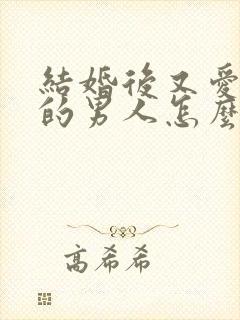 結婚後又愛
的男人怎麼
高希希